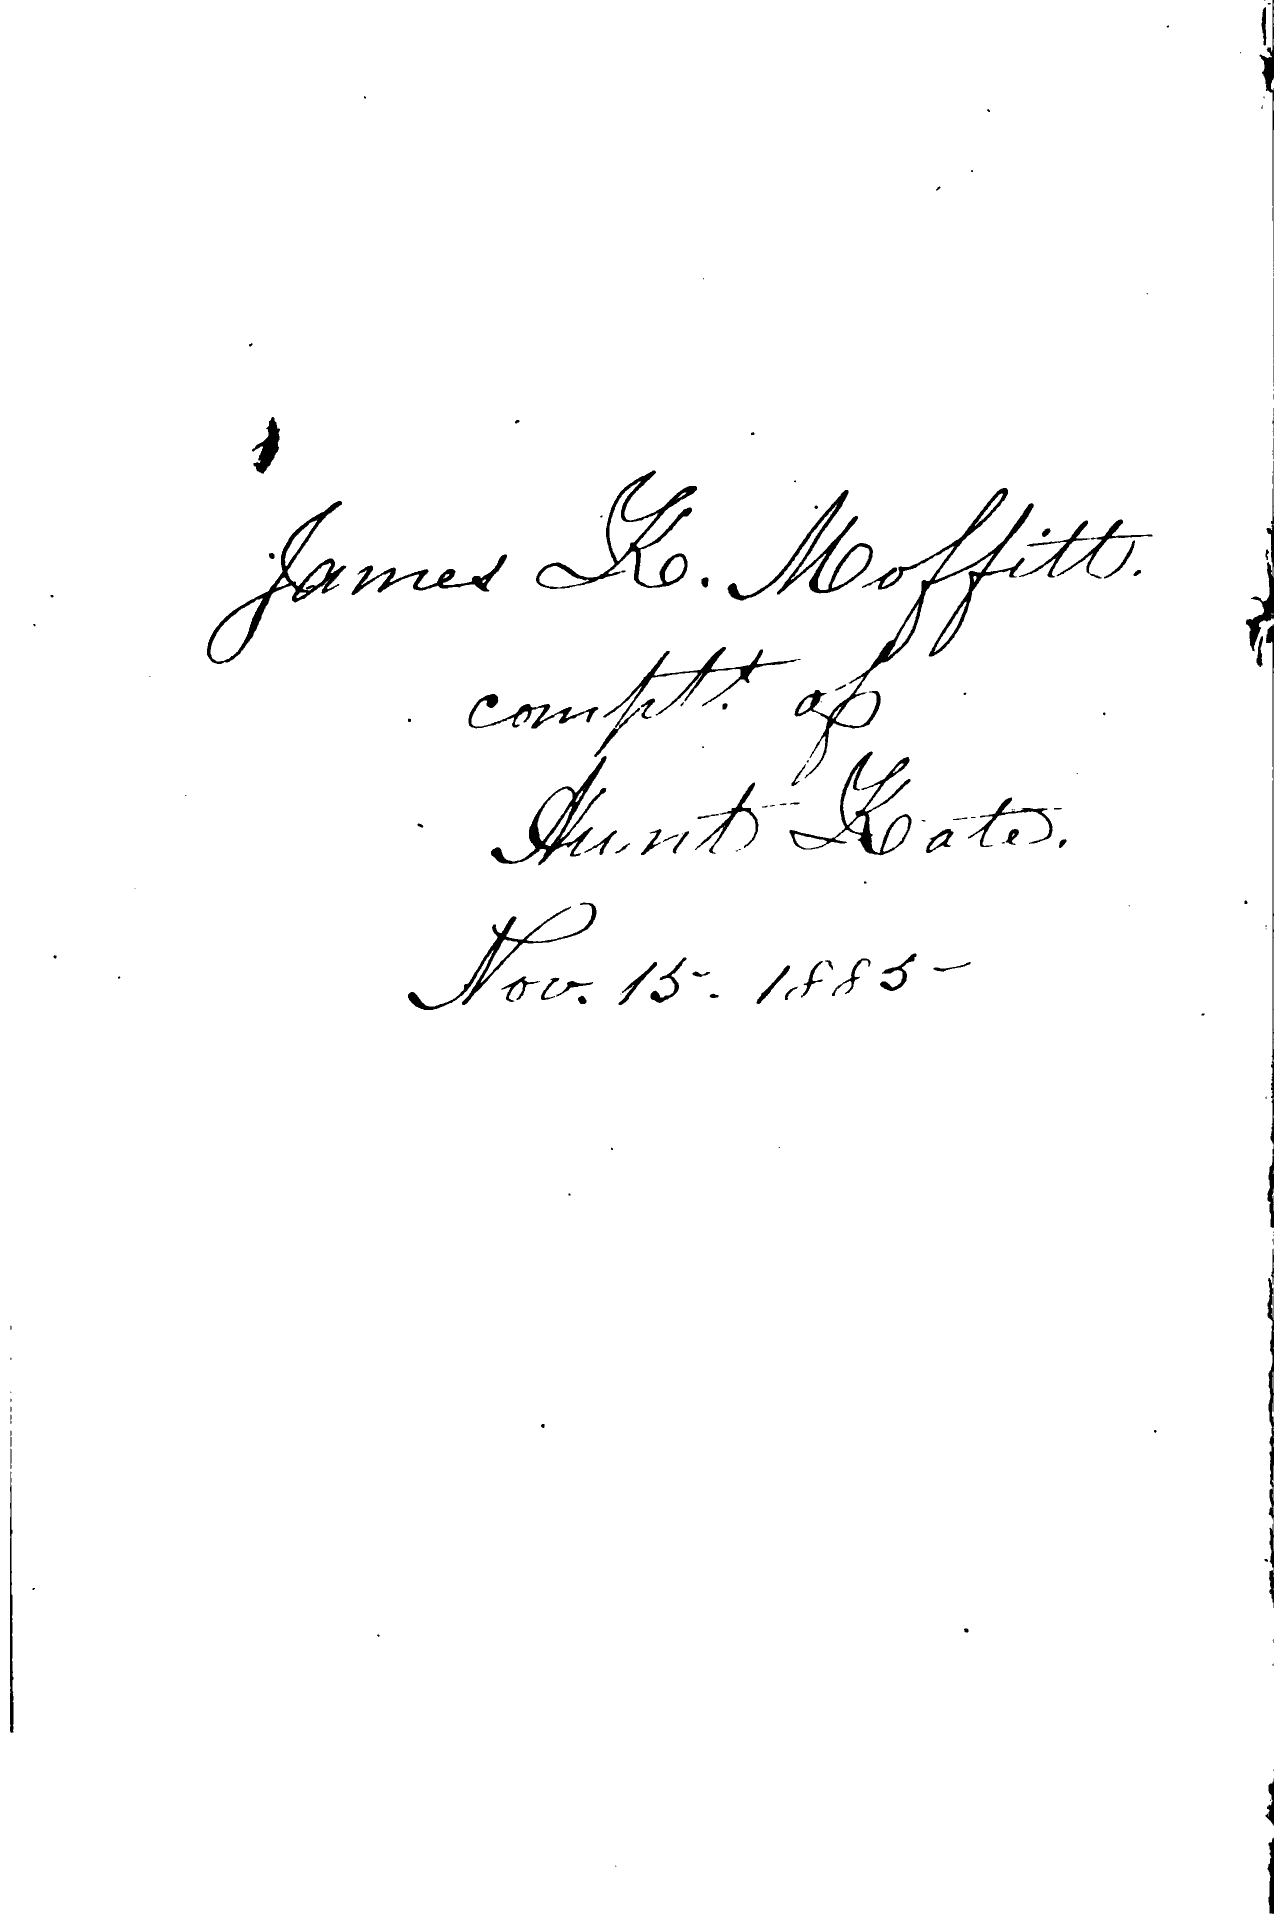 James K. Moffitt.
compt. of
Aunt Kate.
Nov. 15. 1885